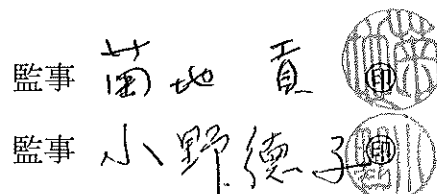 監事 菊地 貢 ㊞
監事 小野 徳子 ㊞